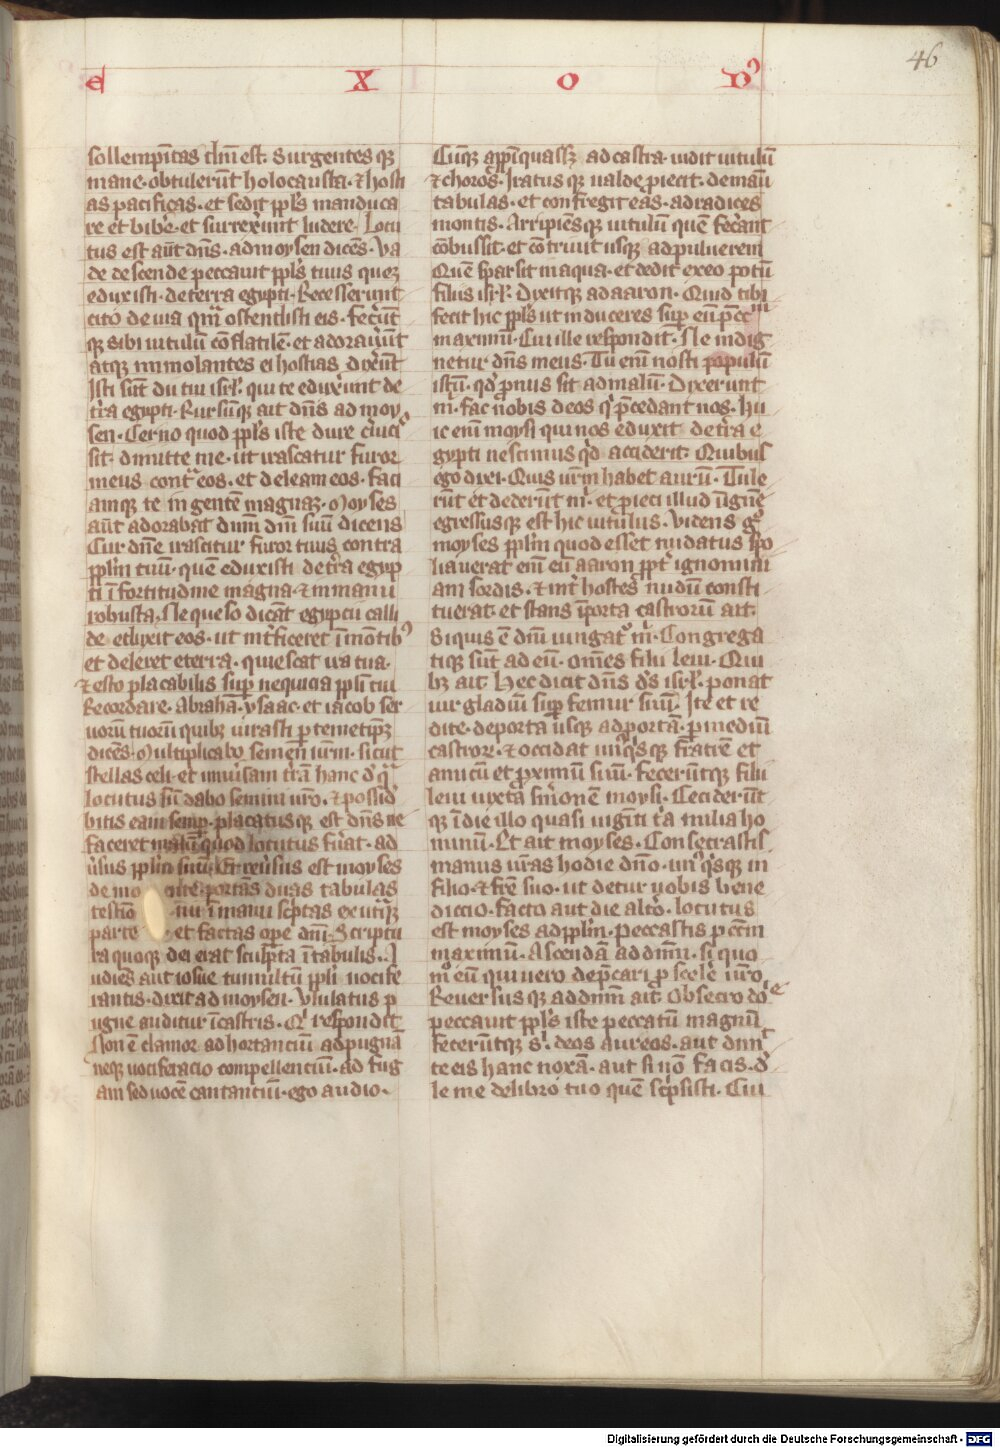 46
e X o dꝰ
sollempnitas dn̄i est. Surgentes qꝫ
mane. obtulerūt holocausta. ⁊ hosti
as pacificas. et sedit ppl̄s manduca
re et bib̄e. et surrex̄unt ludere. Locu
tus est aūt dn̄s. ad moysen dicēs. Va
de descende peccauit ppl̄s tuus quez
eduxisti. de terra egypti. Recesserunt
cito de uia qm̄ ostendisti eis. fecūt
qꝫ sibi uitulū cōflatilē. et adorauūt
atqꝫ immolantes ei hostias dixēnt
Isti sūt dii tui isr̄l. qui te eduxūnt de
t̄ra egypti. Rursūqꝫ ait dn̄s ad moy
sen. Cerno quod ppl̄s iste dure c̄uicꝰ
sit. dimitte me. ut irascatur furor
meus cont̄ eos. et deleam eos. faci
amqꝫ te in gentē magnaꝫ. Moyses
aūt adorabat dn̄m dm̄ suū dicens
Cur dn̄e irascitur furor tuus contra
ppl̄m tuū. quē eduxisti de t̄ra egyp
ti ī fortitudine magna. ⁊ in manu
robusta. Ne queso dicāt egyptii calli
de eduxit eos. ut int̄ficeret ī mōtibꝰ
et deleret e terra. quiescat ira tua.
⁊ esto placabilis suꝑ nequicia ppl̄i tui
Recordare. Abrahā. ysaac. et iacob ser
uorū tuorū quibꝫ iurasti ꝑ temetipꝫ
dicēs. Multiplicabo semen ur̄m. sicut
stellas celi. et uniu̇sam t̄rā hanc d̓ qᷓ
locutus sū dabo semini ur̄o. ⁊ possid̓
bitis eam semꝑ. placatusqꝫ est dn̄s ne
faceret malū quod locutus fūat. ad
u̇sus ppl̄m suū. Et reu̇sus est moyses
de mo nte portas duas tabulas
testīo nii ī manu sc̄ptas ex utraqꝫ
parte et factas oꝑe dn̄i. Scriptu
ra quoqꝫ dei erat sculpta ī tabulis. A
udiēs aut iosue tumultū ppl̄i uocife
rantis. dixit ad moysen. Ululatus p
ugne auditur ī castris. Qͥ respondit
Non ē clamor adhortanciū ad pugnā
neqꝫ uociferacio compellenciū. ad fug
am sed uocē cantantiū. ego audio.
Cūqꝫ app̄īquassꝫ ad castra. uidit uitulū
⁊ choros. Iratusqꝫ ualde ꝓiecit. de manū
tabulas. et confregit eas. ad radices
montis. Arripiēsqꝫ uitulū quē fec̄ant
cōbussit. et cōtriuit usqꝫ ad puluerem
Quē sparsit in aqua. et dedit ex eo potū
filiis isr̄l. Dixitqꝫ ad aaron. Quid tibi
fecit hic ppl̄s ut induceres suꝑ eū pēccᵐ
maximū. Cui ille respondit. Ne indig
netur dn̄s meus. Tu eni nosti populū
istū. qd̓ ꝓnus sit ad malū. Dixerunt
m̄. fac nobis deos qͥ p̄cedant nos. Hu
ic eni moysi qui nos eduxit de t̄ra e
gypti nescimus qͥd acciderit. Quibus
ego dixi. Quis ur̄m habet aurū. Tule
rūt et dederūt mͥ. et ꝓieci illud ī ignē
egressusqꝫ est hic uitulus. Videns gͦ
moyses ppl̄m quod esset nudatus spo
liauerat eni eū aaron ꝓpt̓ ignomini
am sordis. ⁊ int̓ hostes nudū consti
tuerat. et stans ī porta castrorū ait.
Siquis ē dn̄i iungatᵒ m̄. Congrega
tiqꝫ sūt ad eū. om̄es filii leui. Qui
bꝫ ait. Hec dicit dn̄s d̄s isr̄l. ponat
uir gladiū suꝑ femur suū. Ite et re
dite. de porta usqꝫ ad portā. ꝑ mediū
castroꝝ. ⁊ occidat unꝰqͥsqꝫ fratrē et
amicū et ꝓximū suū. fecerūtqꝫ filii
leui iuxta sm̄onē moysi. Ceciderūt
qꝫ ī die illo quasi uiginti t̄a milia ho
minū. Et ait moyses. Consecrastis
manus ur̄as hodie dn̄o. unꝰqͥsqꝫ in
filio. ⁊ fr̄e suo. ut detur uobis bene
diccio. facto aut die alt̄o. locutus
est moyses ad ppl̄m. peccastis pccm̄
maximū. Ascendā ad dn̄m. si quo
mͦ eū quiuero dep̄cari ꝓ scele ur̄o
Reuersusqꝫ ad dn̄m ait. Obsecro dōⁿᵉ
peccauit ppl̄s iste peccatū magnū
fecerūtqꝫ sͥ. deos aureos. aut dimitᵗ
te eis hanc noxā. aut si nō facis. d̓
le me de libro tuo quē sc̄psisti. Cui
Digitalisierung gefördert durch die Deutsche Forschungsgemeinschaft - DFG